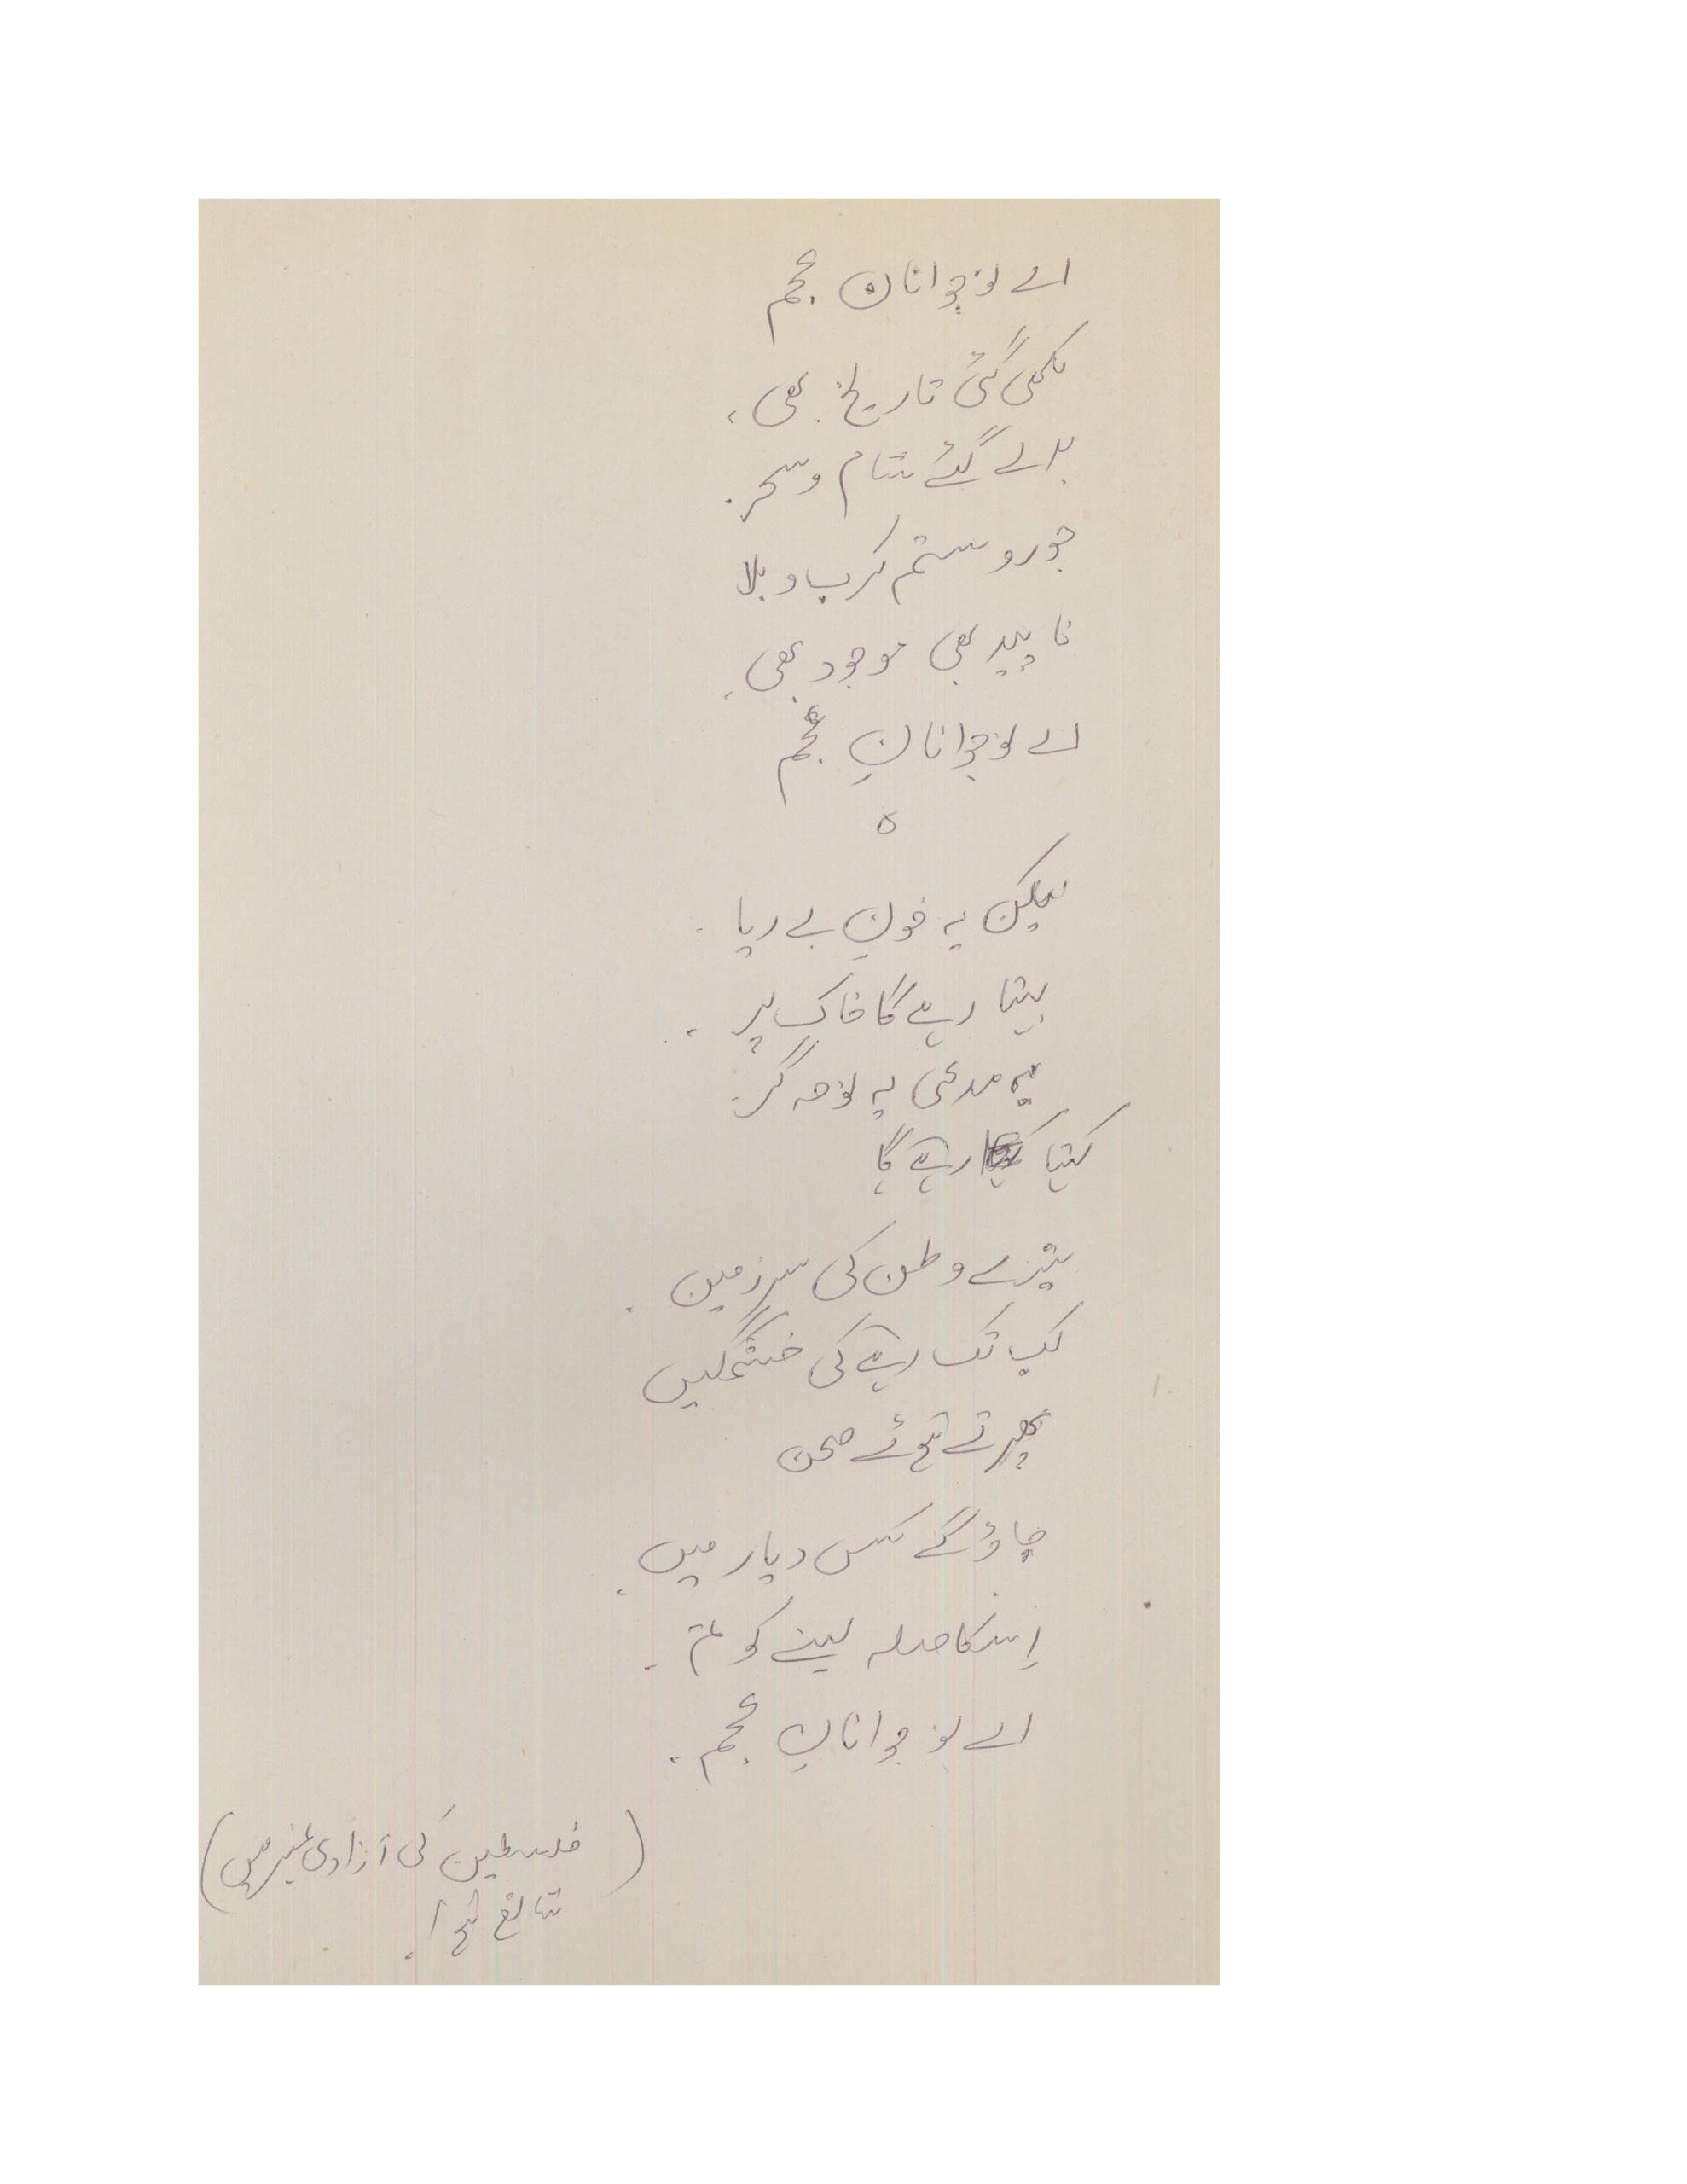 اے نوجوانان عجم
لکھی گئی تاریخ بھی،
بدلے گئے شام و سحر۔
جور و ستم کرب و بلا
ناپید بھی موجود بھی۔
اے نوجوانانِ عجم
ہ
لیکن یہ خونِ بے ریا۔
بہتا رہے گا خاک پر،
یہ مدعی یہ نوحہ گر۔
کہتا رہے گا
تیرے وطن کی سرزمین۔
کب تک رہے گی خشمگیں
پھرتے ہوئے صحن
جاؤ گے کس دیار میں۔
اِسکا صلہ لینے کو تم۔
اے نوجوانانِ عجم،
(فلسطین کی آزادی نمبر میں)
شائع ہوا۔